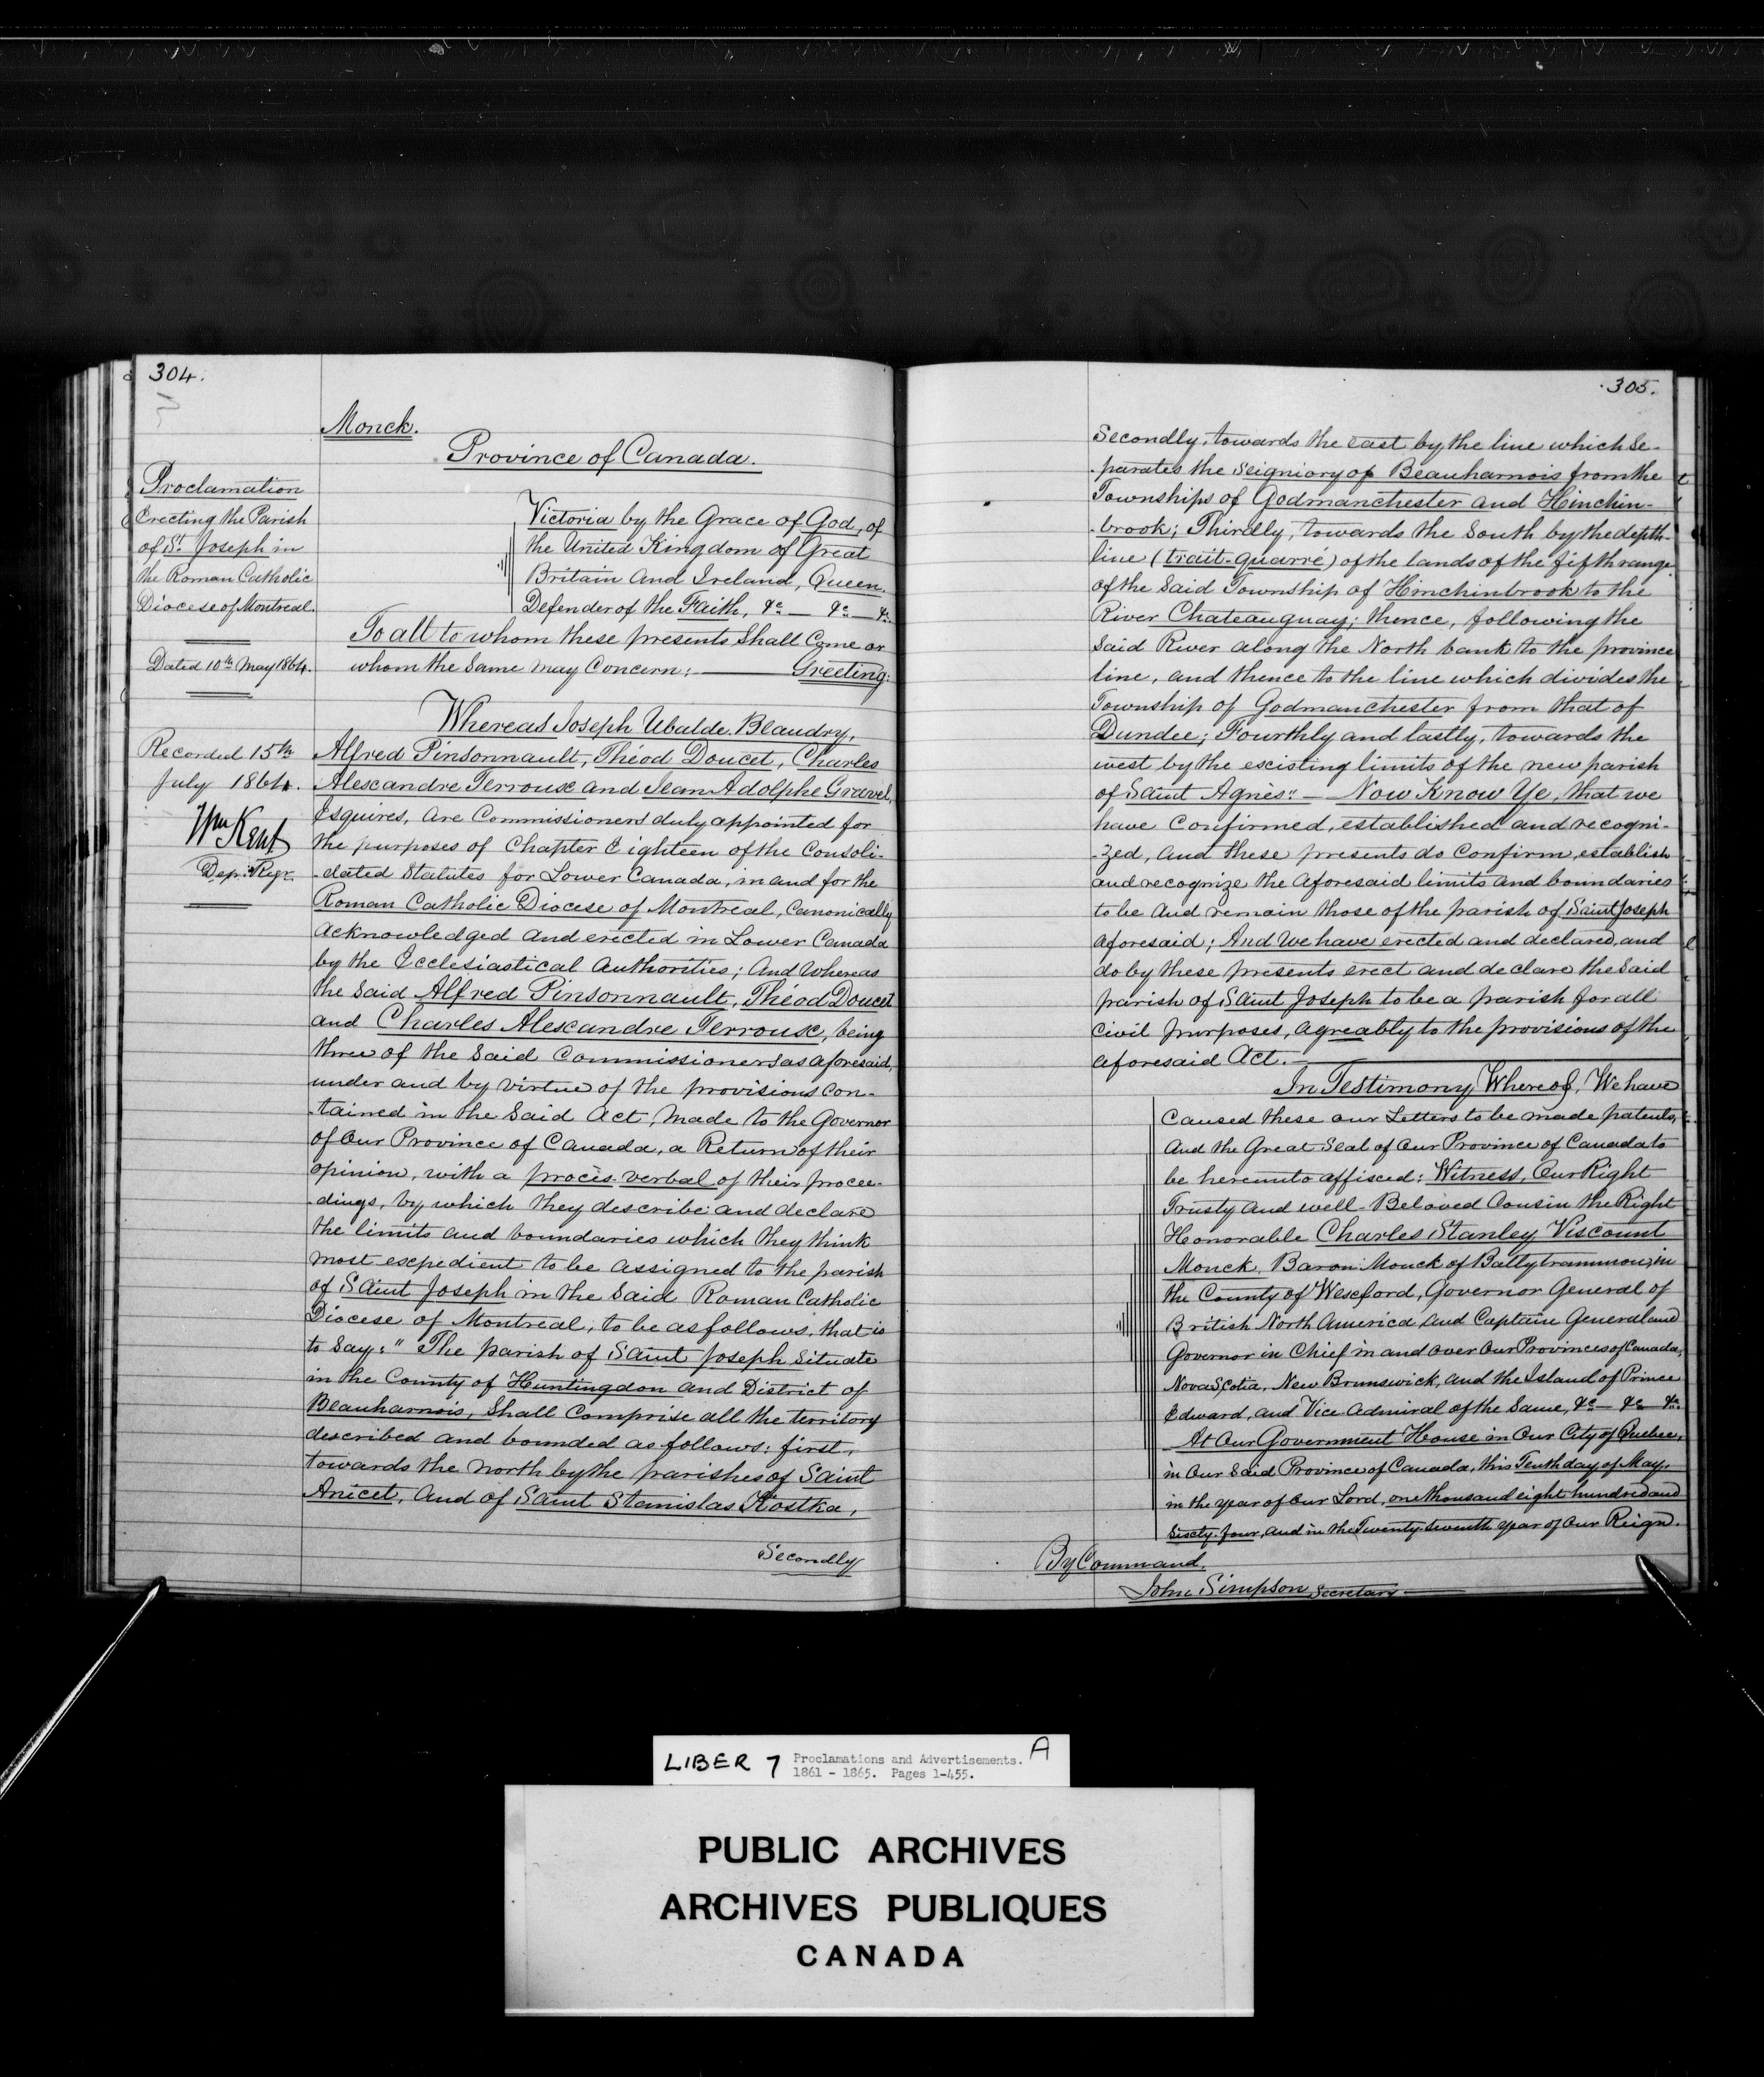 304.
Monck.
Province of Canada.
Proclamation
Erecting the Parish
of St. Joseph in
the Roman Catholic
Diocese of Montreal.
Dated 10th May 1864.
Recorded 15th
July 1864.
Wm Kent
Dep: Regr
Victoria by the Grace of God, of
the United Kingdom of Great
Britain and Ireland, Queen,
Defender of the Faith, &c — &c — &c
To all to whom these presents shall come or
whom the same may concern: — Greeting:
Whereas Joseph Ubalde Beaudry,
Alfred Pinsonnault, Théod Doucet, Charles
Alexandre Terroux and Jean Adolphe Gravel,
Esquires, are Commissioners duly appointed for
the purposes of Chapter Eighteen of the Consoli-
-dated Statutes for Lower Canada, in and for the
Roman Catholic Diocese of Montreal, Canonically
acknowledged and erected in Lower Canada
by the Ecclesiastical Authorities; And Whereas
the said Alfred Pinsonnault, Théod Doucet
and Charles Alexandre Terroux, being
three of the said Commissioners as aforesaid,
under and by virtue of the provisions con-
-tained in the said Act, made to the Governor
of Our Province of Canada, a Return of their
opinion, with a procès-verbal of their procee-
-dings, by which they describe and declare
the limits and boundaries which they think
most expedient to be assigned to the parish
of Saint Joseph in the said Roman Catholic
Diocese of Montreal, to be as follows, that is
to say: " The parish of Saint Joseph situate
in the County of Huntingdon and District of
Beauharnois, shall comprise all the territory
described and bounded as follows: first,
towards the north by the parishes of Saint
Anicet, and of Saint Stanislas Kostka,
Secondly
305.
Secondly, towards the east by the line which se-
-parates the seigniory of Beauharnois from the
Townships of Godmanchester and Hinchin-
-brook; Thirdly, towards the South by the depth-
line (trait-quarré) of the lands of the fifth range
of the said Township of Hinchinbrook to the
River Chateauguay; thence, following the
said River along the North bank to the province
line, and thence to the line which divides the
Township of Godmanchester from that of
Dundee; Fourthly and lastly, towards the
west by the existing limits of the new parish
of Saint Agnès." — Now Know Ye, that we
have confirmed, established and recogni-
-zed, and these presents do confirm, establish
and recognize the aforesaid limits and boundaries
to be and remain those of the parish of Saint Joseph
aforesaid; And We have erected and declared, and
do by these presents erect and declare the said
parish of Saint Joseph to be a parish for all
civil purposes, agreably to the provisions of the
aforesaid Act. —
In Testimony Whereof, We have
caused these our Letters to be made patents,
And the Great Seal of Our Province of Canada to
be hereunto affixed: Witness, Our Right
Trusty and well-Beloved Cousin the Right
Honorable Charles Stanley Viscount
Monck, Baron Monck of Ballytrammon, in
the County of Wexford, Governor General of
British North America, and Captain General and
Governor in Chief in and over Our Provinces of Canada,
Nova Scotia, New Brunswick, and the Island of Prince
Edward, and Vice Admiral of the Same, &c — &c — &c.
At Our Government House in Our City of Quebec,
in Our said Province of Canada, this Tenth day of May,
in the year of Our Lord, one thousand eight hundred and
sixty-four, and in the Twenty-seventh year of Our Reign.
By Command,
John Simpson Secretary —
LIBER 7 Proclamations and Advertisements. A
1861 - 1865. Pages 1-455.
PUBLIC ARCHIVES
ARCHIVES PUBLIQUES
CANADA